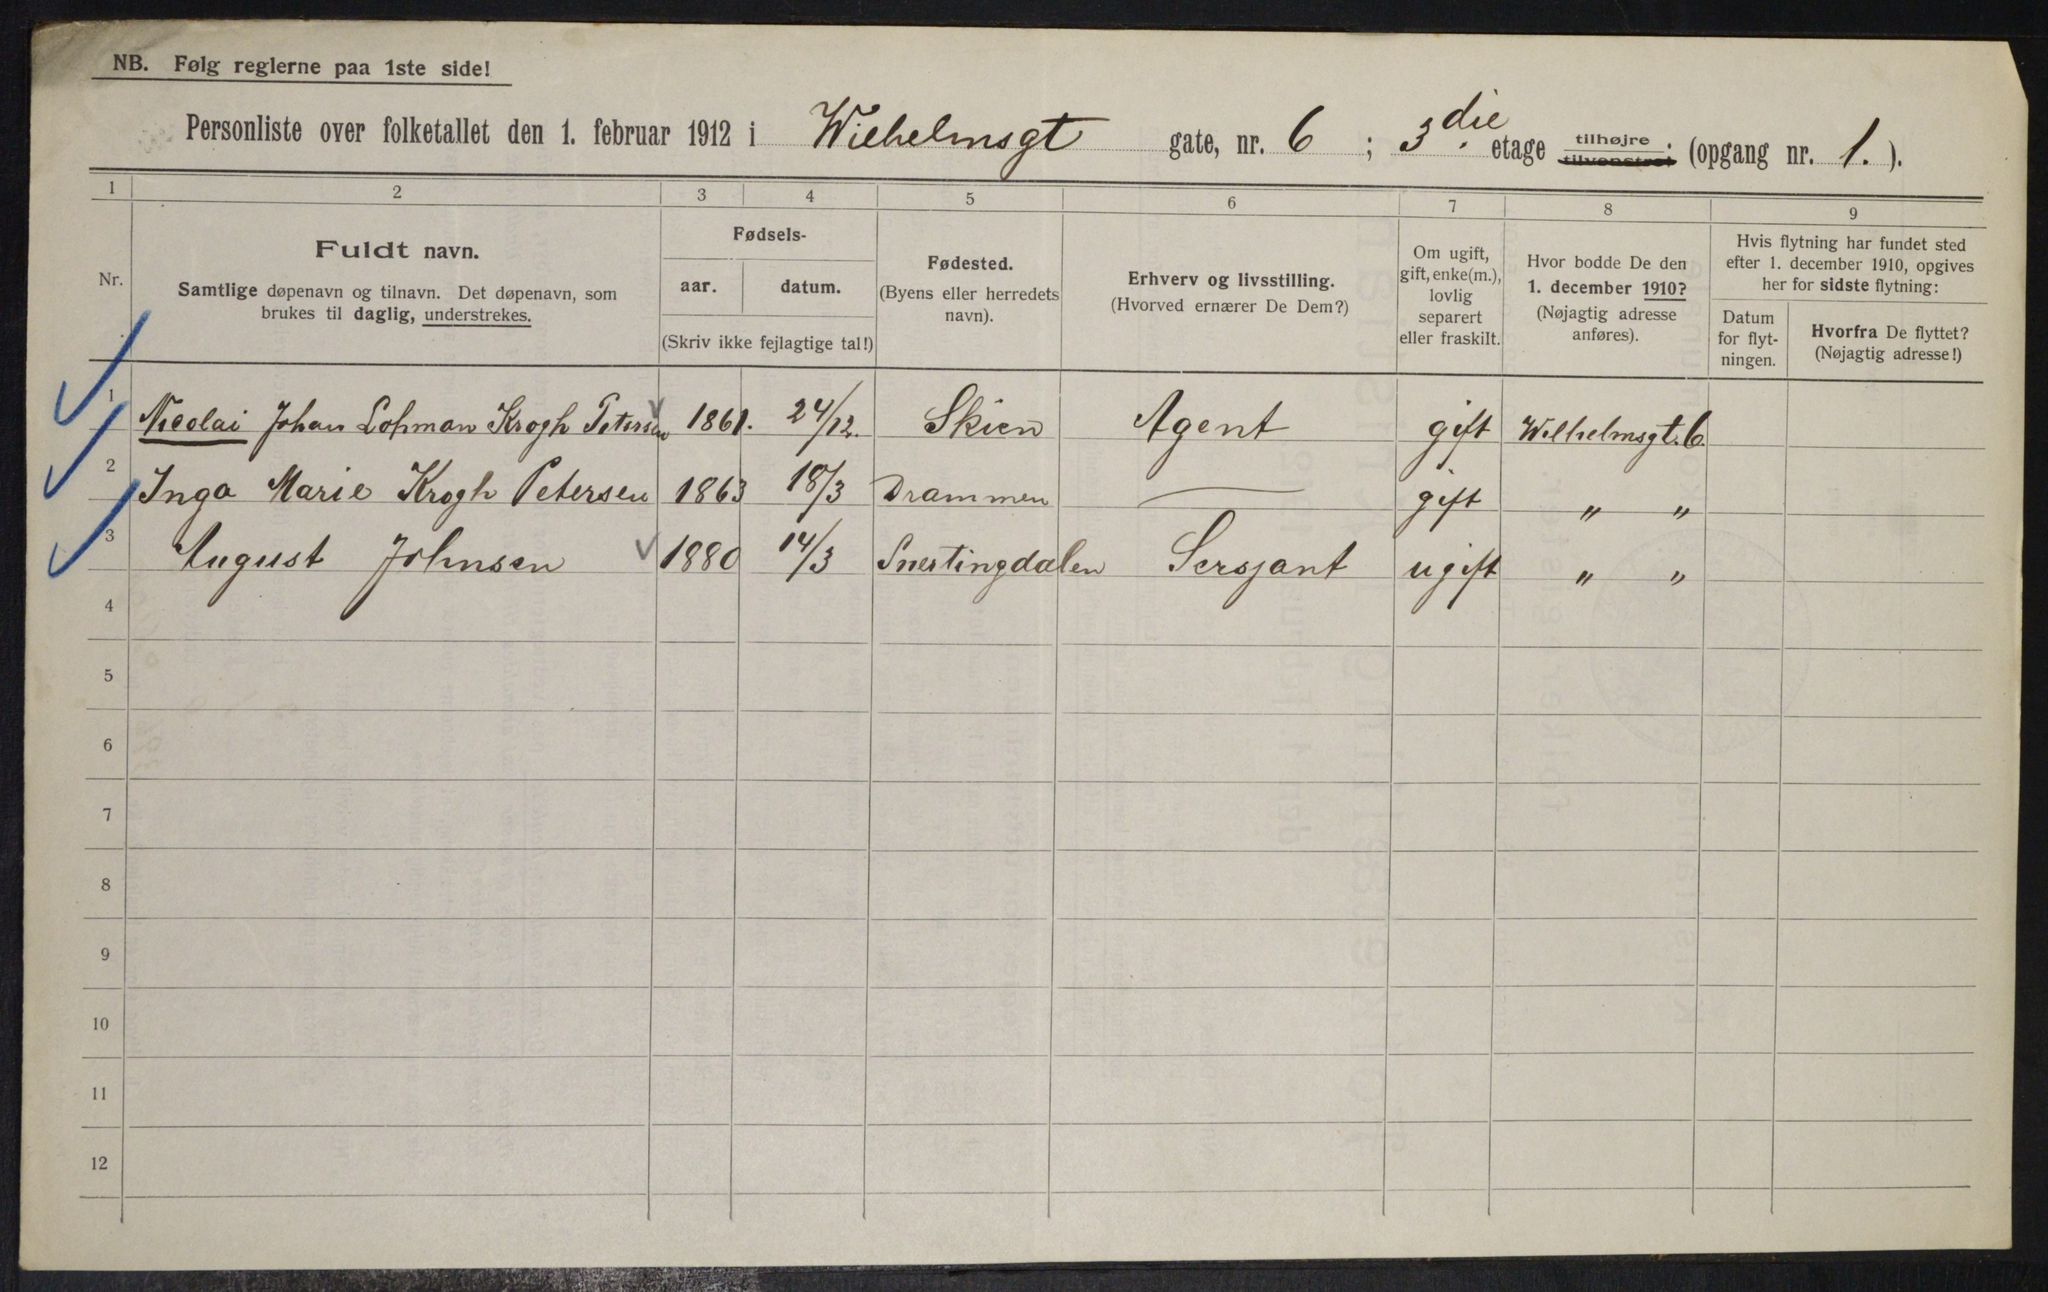 NB. Følg reglerne paa 1ste side!
Personliste over folketallet den 1. februar 1912 i Wilhelmsgt gate, nr. 6 ; 3die etage tilhøjre tilvenstre. (opgang nr. 1. ).
1 2 3 4 5 6 7 8 9
Nr.
Fuldt navn.
Samtlige døpenavn og tilnavn. Det døpenavn, som
brukes til daglig, understrekes.
Fødsels-
aar. datum.
(Skriv ikke fejlagtige tal!)
Fødested.
(Byens eller herredets
navn).
Erhverv og livsstilling.
(Hvorved ernærer De Dem?)
Om ugift,
gift, enke(m.),
lovlig
separert
eller fraskilt.
Hvor bodde De den
1. december 1910?
(Nøjagtig adresse
anføres).
Hvis flytning har fundet sted
efter 1. december 1910, opgives
her for sidste flytning:
Datum
for flyt-
ningen.
Hvorfra De flyttet?
(Nøjagtig adresse!)
1 Nicolai Johan Lohman Krogh Petersen 1861. 24/12. Skien Agent gift Wilhelmsgt. 6
2 Inga Marie Krogh Petersen 1863 18/3 Drammen — gift " "
3 August Johnsen 1880 14/3 Snertingdalen Sersjant ugift " "
4
5
6
7
8
9
10
11
12